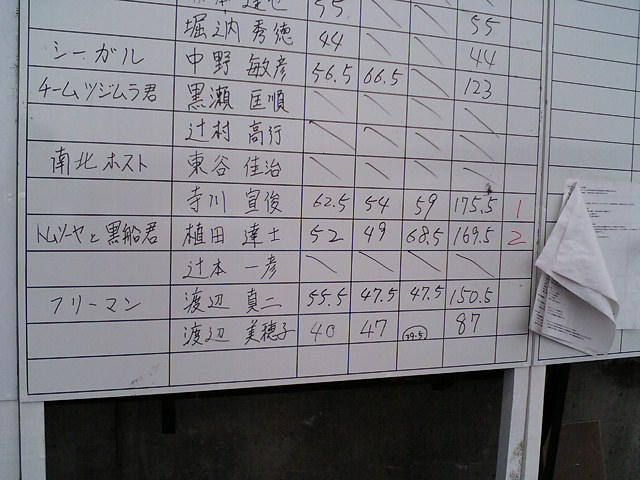 55 55
堀之内 秀徳 44 44
シーガル 中野 敏彦 56.5 66.5 123
チームツジムラ君 黒瀬 匡順
辻村 高行
南北ホスト 東谷 佳治
寺川 宣俊 62.5 54 59 175.5 1
トムソーヤと黒船君 植田 達士 52 49 68.5 169.5 2
辻本 一彦
フリーマン 渡辺 真二 55.5 47.5 47.5 150.5
渡辺 美穂子 40 47 (39.5) 87